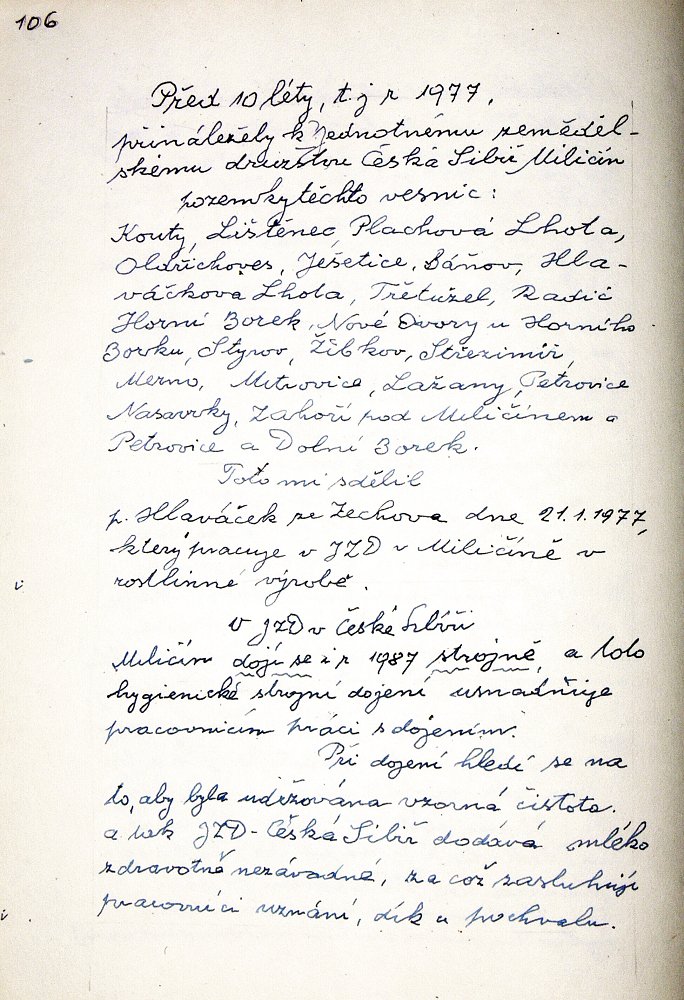 106
Před 10 léty, t. j r 1977.
přináležely k Jednotnému zeměděl-
skému družstvu Česká Sibiř Miličín
pozemky těchto vesnic:
Kouty, Lištěnec Plachová Lhota,
Oldřichoves, Ješetice, Báňov, Hla-
váčkova Lhota, Třetužel, Radíč
Horní Borek, Nové Dvory u Horního
Borku, Styrov, Žibkov, Střezimíř,
Merno, Mitrovice, Lažany, Petrovice
Nasavrky, Zahoří pod Miličínem a
Petrovice a Dolní Borek.
Toto mi sdělil
p. Hlaváček ze Zechova dne 21.1.1977,
který pracuje v JZD v Miličíně v
rostlinné výrobě.
V JZD v České Sibíři
Miličín dojí se i r 1987 strojně, a toto
hygienické strojní dojení usnadňuje
pracovnicím práci s dojením.
Při dojení hledí se na
to, aby byla udržována vzorná čistota.
a tak JZD - Česká Sibiř dodává mléko
zdravotně nezávadné, za což zasluhují
pracovníci uznání, dík a pochvalu.